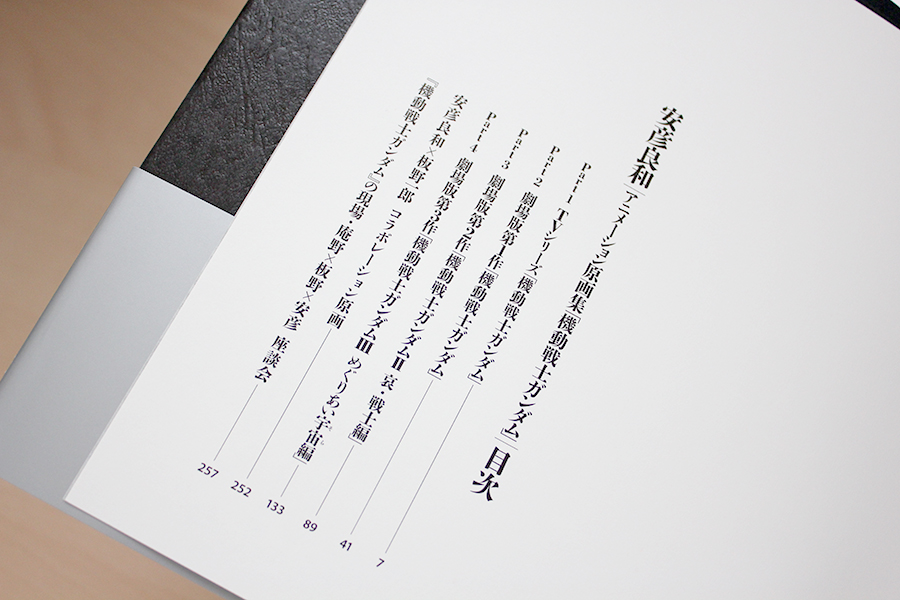 安彦良和|アニメーション原画集「機動戦士ガンダム」|目次
Part1 TVシリーズ「機動戦士ガンダム」 7
Part2 劇場版第1作「機動戦士ガンダム」 41
Part3 劇場版第2作「機動戦士ガンダムII 哀・戦士編」 89
Part4 劇場版第3作「機動戦士ガンダムIII めぐりあい宇宙編」 133
安彦良和×板野一郎 コラボレーション原画 252
『機動戦士ガンダム』の現場・庵野×板野×安彦 座談会 257